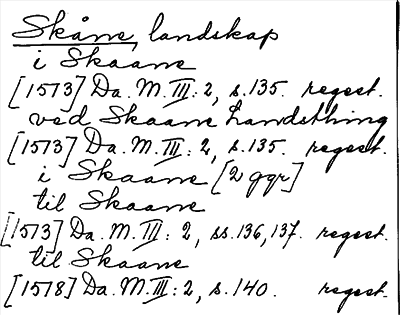 Skåne, landskap
i Skaane
[1573] Da. M. III: 2, s. 135. regest.
ved Skaane Landstthing
[1573] Da. M. III: 2, s. 135. regest.
i Skaane [2 ggr]
til Skaane
[1573] Da. M. III: 2, ss. 136, 137. regest.
til Skaane
[1578] Da. M. III: 2, s. 140. regest.